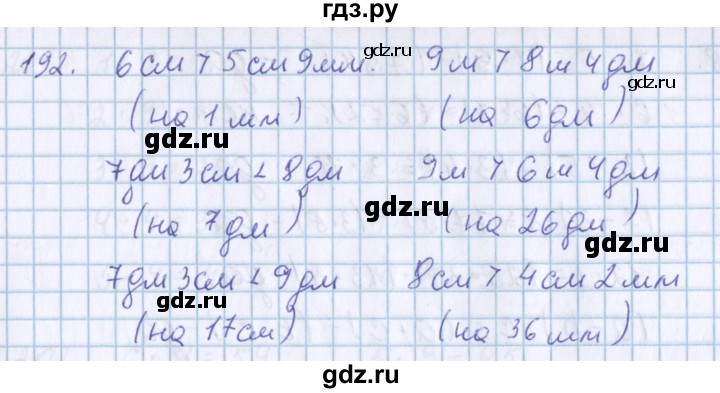 гдз.ру
192. 6 см > 5 см 9 мм. 9 м > 8 м 4 дм
gdz.ru
(на 1 мм) (на 6 дм)
gdz.ru gdz.ru
7 дм 3 см < 8 дм 9 м > 6 м 4 дм
gdz.ru gdz.ru
(на 7 дм) (на 26 дм)
7 дм 3 см < 9 дм 8 см > 4 см 2 мм
gdz.ru gdz.ru
(на 17 см) (на 36 мм)
gdz.ru